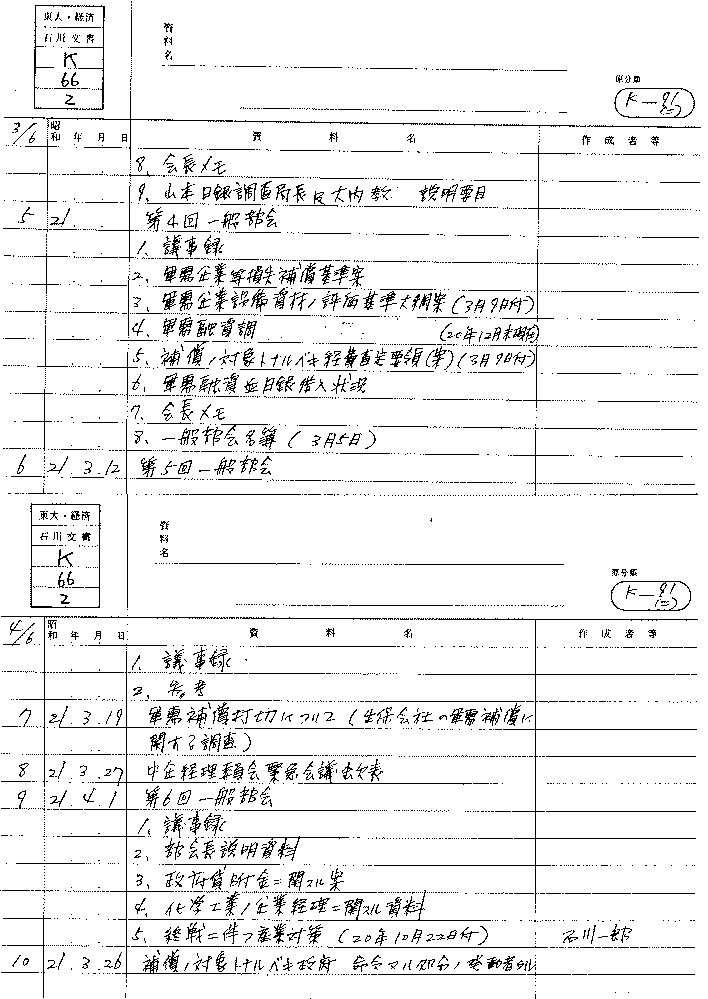 東大・経済
石川文書
K
66
2
資料名
原分類
K-91
(二)
3/6 昭和 年 月 日 資 料 名 作成者等
8、会長メモ
9、山本日銀調査局長及大内教 説明要目
5 21. 第4回一般部会
1、議事録
2、軍需企業等損失補償基準案
3、軍需企業設備資材ノ評価基準大綱案(3月9日付)
4、軍需融資調 (20年12月末現在)
5、補償ノ対象トナルベキ経費査定要領(案)(3月9日付)
6、軍需融資並日銀借入状況
7、会長メモ
8、一般部会名簿(3月5日)
6 21.3.12 第5回一般部会
東大・経済
石川文書
K
66
2
資料名
原分類
K-91
(二)
4/6 昭和 年 月 日 資 料 名 作成者等
1、議事録
2、参考
7 21.3.19 軍需補償打切について(生保会社の軍需補償に
関する調査)
8 21.3.27 中企経理委員会緊急会議出欠表
9 21.4.1 第6回一般部会
1、議事録
2、部会長説明資料
3、政府貸附金ニ関スル案
4、化学工業ノ企業経理ニ関スル資料
5、終戦ニ伴フ産業対策(20年10月22日付) 石川一郎
10 21.3.26 補償ノ対象トナルベキ政府 命令又ハ処分ノ発動者タル